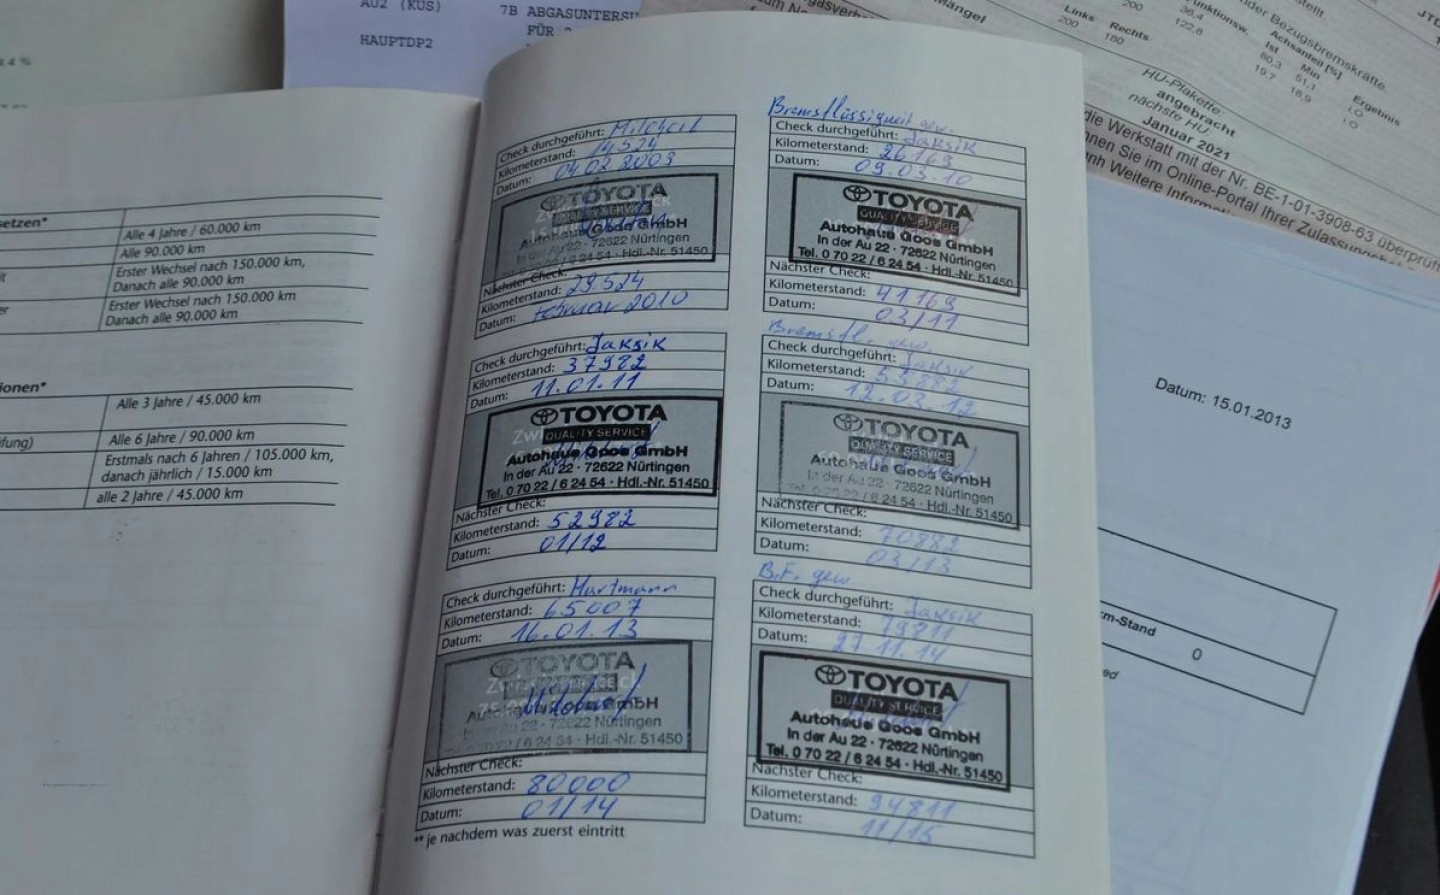 AU2 (KÜS)
7B ABGASUNTERSU
FÜR
HAUPTDP2
4 %
Mängel
Links Rechts
200 180
200
Funktionsw.
36,4
122,8
der Bezugsbremskräfte.
Achsanteil [%]
Ist Min
80,3 51,1
19,7 18,9
Ergebnis
HU-Plakette:
angebracht
nächste HU:
Januar 2021
die Werkstatt mit der Nr. BE-1-01-3908-63 überprüft
nnen Sie im Online-Portal Ihrer Zulassungsbe
Weitere Informat
setzen*
Alle 4 Jahre / 60.000 km
Alle 90.000 km
Erster Wechsel nach 150.000 km,
Danach alle 90.000 km
Erster Wechsel nach 150.000 km
Danach alle 90.000 km
ionen*
Alle 3 Jahre / 45.000 km
üfung)
Alle 6 Jahre / 90.000 km
Erstmals nach 6 Jahren / 105.000 km,
danach jährlich / 15.000 km
alle 2 Jahre / 45.000 km
Check durchgeführt:
Kilometerstand: 14524
Datum: 04.02.2009
TOYOTA
QUALITY SERVICE
Autohaus Goos GmbH
In der Au 22 · 72622 Nürtingen
Nächster Check:
Kilometerstand: 29524
Datum: Februar 2010
Check durchgeführt: Jaksik
Kilometerstand: 37982
Datum: 11.01.11
TOYOTA
QUALITY SERVICE
Autohaus Goos GmbH
In der Au 22 · 72622 Nürtingen
Tel. 0 70 22 / 6 24 54 · Hdl.-Nr. 51450
Nächster Check:
Kilometerstand: 52982
Datum: 01/12
Check durchgeführt: Hartmann
Kilometerstand: 65007
Datum: 16.01.13
TOYOTA
GmbH
In der Au 22 · 72622 Nürtingen
Tel. 0 70 22 / 6 24 54 · Hdl.-Nr. 51450
Nächster Check:
Kilometerstand: 80000
Datum: 01/14
** je nachdem was zuerst eintritt
Bremsflüssigkeit gew.
Check durchgeführt: Jaksik
Kilometerstand: 26169
Datum: 09.03.10
TOYOTA
QUALITY SERVICE
Autohaus Goos GmbH
In der Au 22 · 72622 Nürtingen
Tel. 0 70 22 / 6 24 54 · Hdl.-Nr. 51450
Nächster Check:
Kilometerstand: 41169
Datum: 03/11
Bremsfl. gew.
Check durchgeführt: Jaksik
Kilometerstand: 55882
Datum: 12.03.12
TOYOTA
QUALITY SERVICE
Autohaus Goos GmbH
In der Au 22 · 72622 Nürtingen
Tel. 0 70 22 / 6 24 54 · Hdl.-Nr. 51450
Nächster Check:
Kilometerstand: 70882
Datum: 03/13
B.F. gew
Check durchgeführt: Jaksik
Kilometerstand: 79811
Datum: 27.11.14
TOYOTA
QUALITY SERVICE
Autohaus Goos GmbH
In der Au 22 · 72622 Nürtingen
Tel. 0 70 22 / 6 24 54 · Hdl.-Nr. 51450
Nächster Check:
Kilometerstand: 94811
Datum: 11/15
Datum: 15.01.2013
km-Stand
0
ed